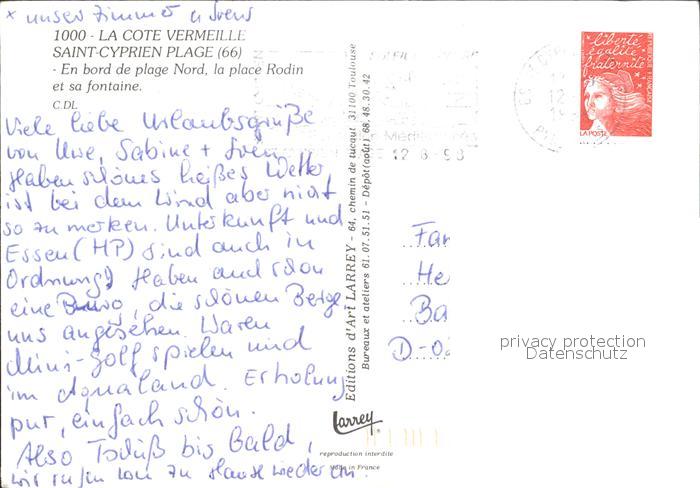 * unser Zimmer u Svens
1000 - LA COTE VERMEILLE
SAINT-CYPRIEN PLAGE (66)
- En bord de plage Nord, la place Rodin
et sa fontaine.
C.DL
Viele liebe Urlaubsgrüße
von Uwe, Sabine + Sven.
Haben schönes heißes Wetter,
ist bei dem Wind aber nicht
so zu merken. Unterkunft und
Essen (HP) sind auch in
Ordnung! Haben auch schon
eine , die schönen Berge
uns angesehen. Waren
Mini-Golf spielen und
im Aqualand. Erholung
pur, einfach schön.
Also Tschüß bis Bald,
wir rufen von zu Hause wieder an.
Editions d'Art LARREY - 64, chemin de tucaut 31100 Toulouse
Bureaux et ateliers 61.07.51.51 - Dépôt (août) 68.48.30.42
Larrey
reproduction interdite
Made in France
12-8-98
liberté
égalité
fraternité
RÉPUBLIQUE FRANÇAISE
LA POSTE
Fam
He
Ba
D-0
privacy protection
Datenschutz